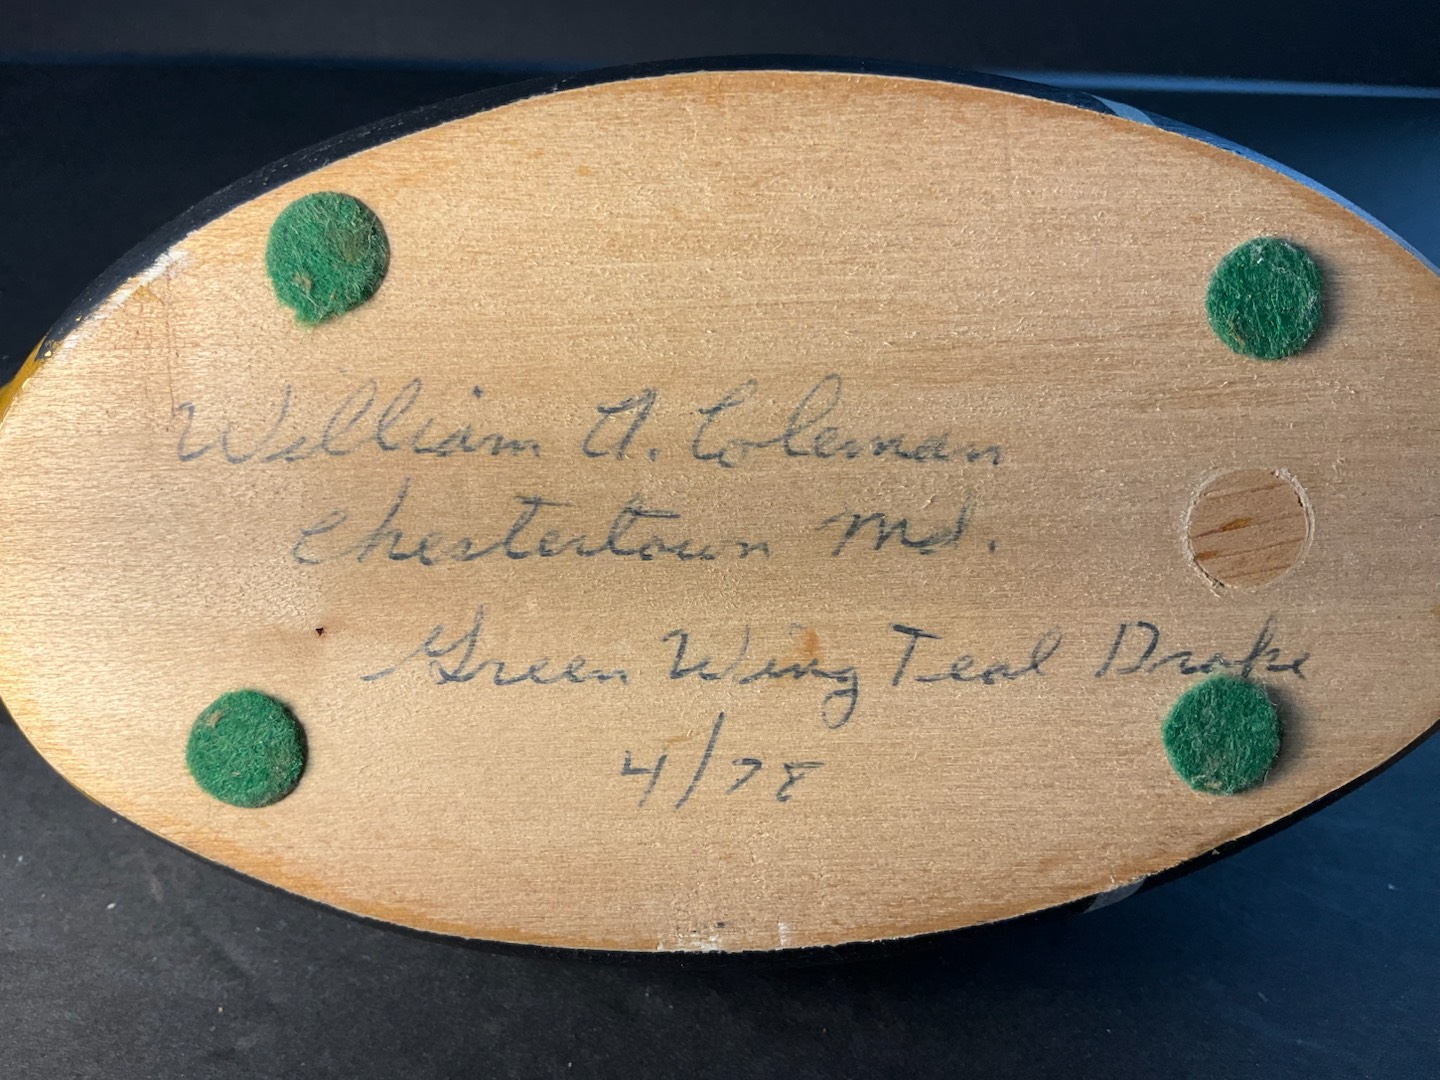 William A. Coleman
Chestertown Md.
Green Wing Teal Drake
4/78